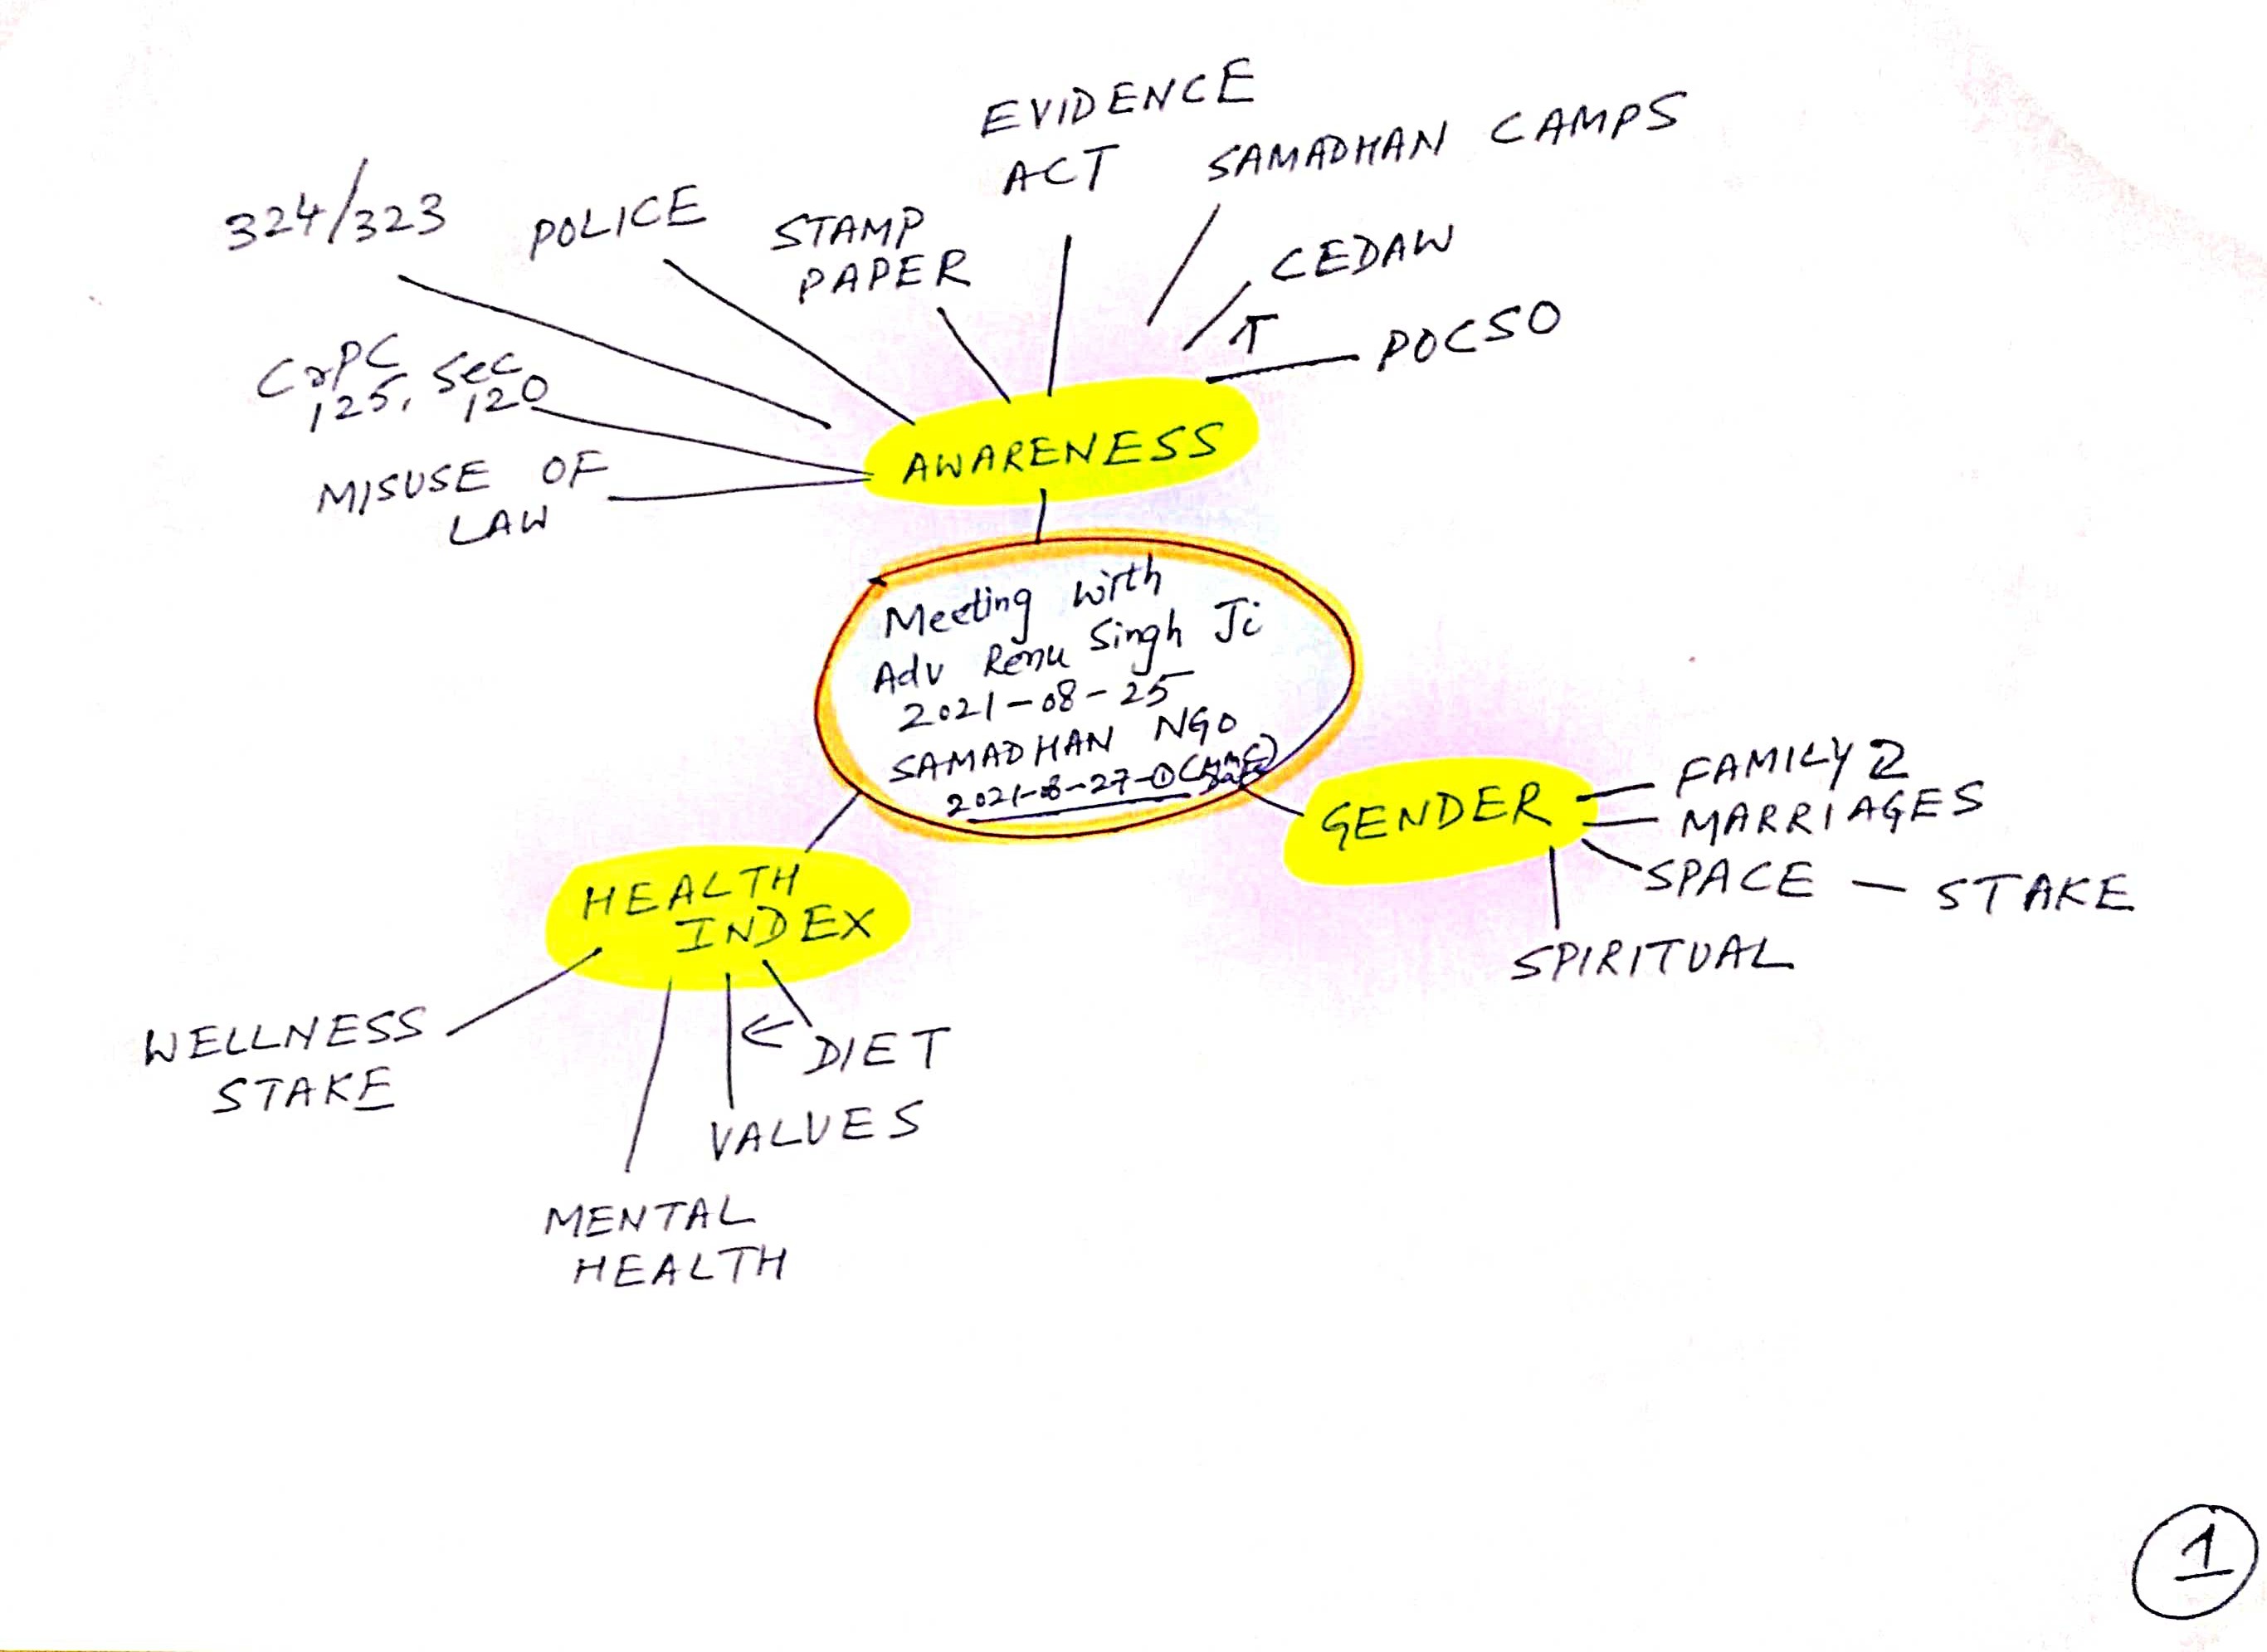 EVIDENCE
ACT
SAMADHAN CAMPS
324/323
POLICE
STAMP
PAPER
CEDAW
POCSO
CrPC
125, Sec
120
MISUSE OF
LAW
AWARENESS
Meeting with
Adv Renu Singh Ji
2021-08-25
SAMADHAN NGO
2021-8-27-①
GENDER
FAMILY 2
MARRIAGES
SPACE - STAKE
SPIRITUAL
HEALTH
INDEX
WELLNESS
STAKE
DIET
VALUES
MENTAL
HEALTH
1